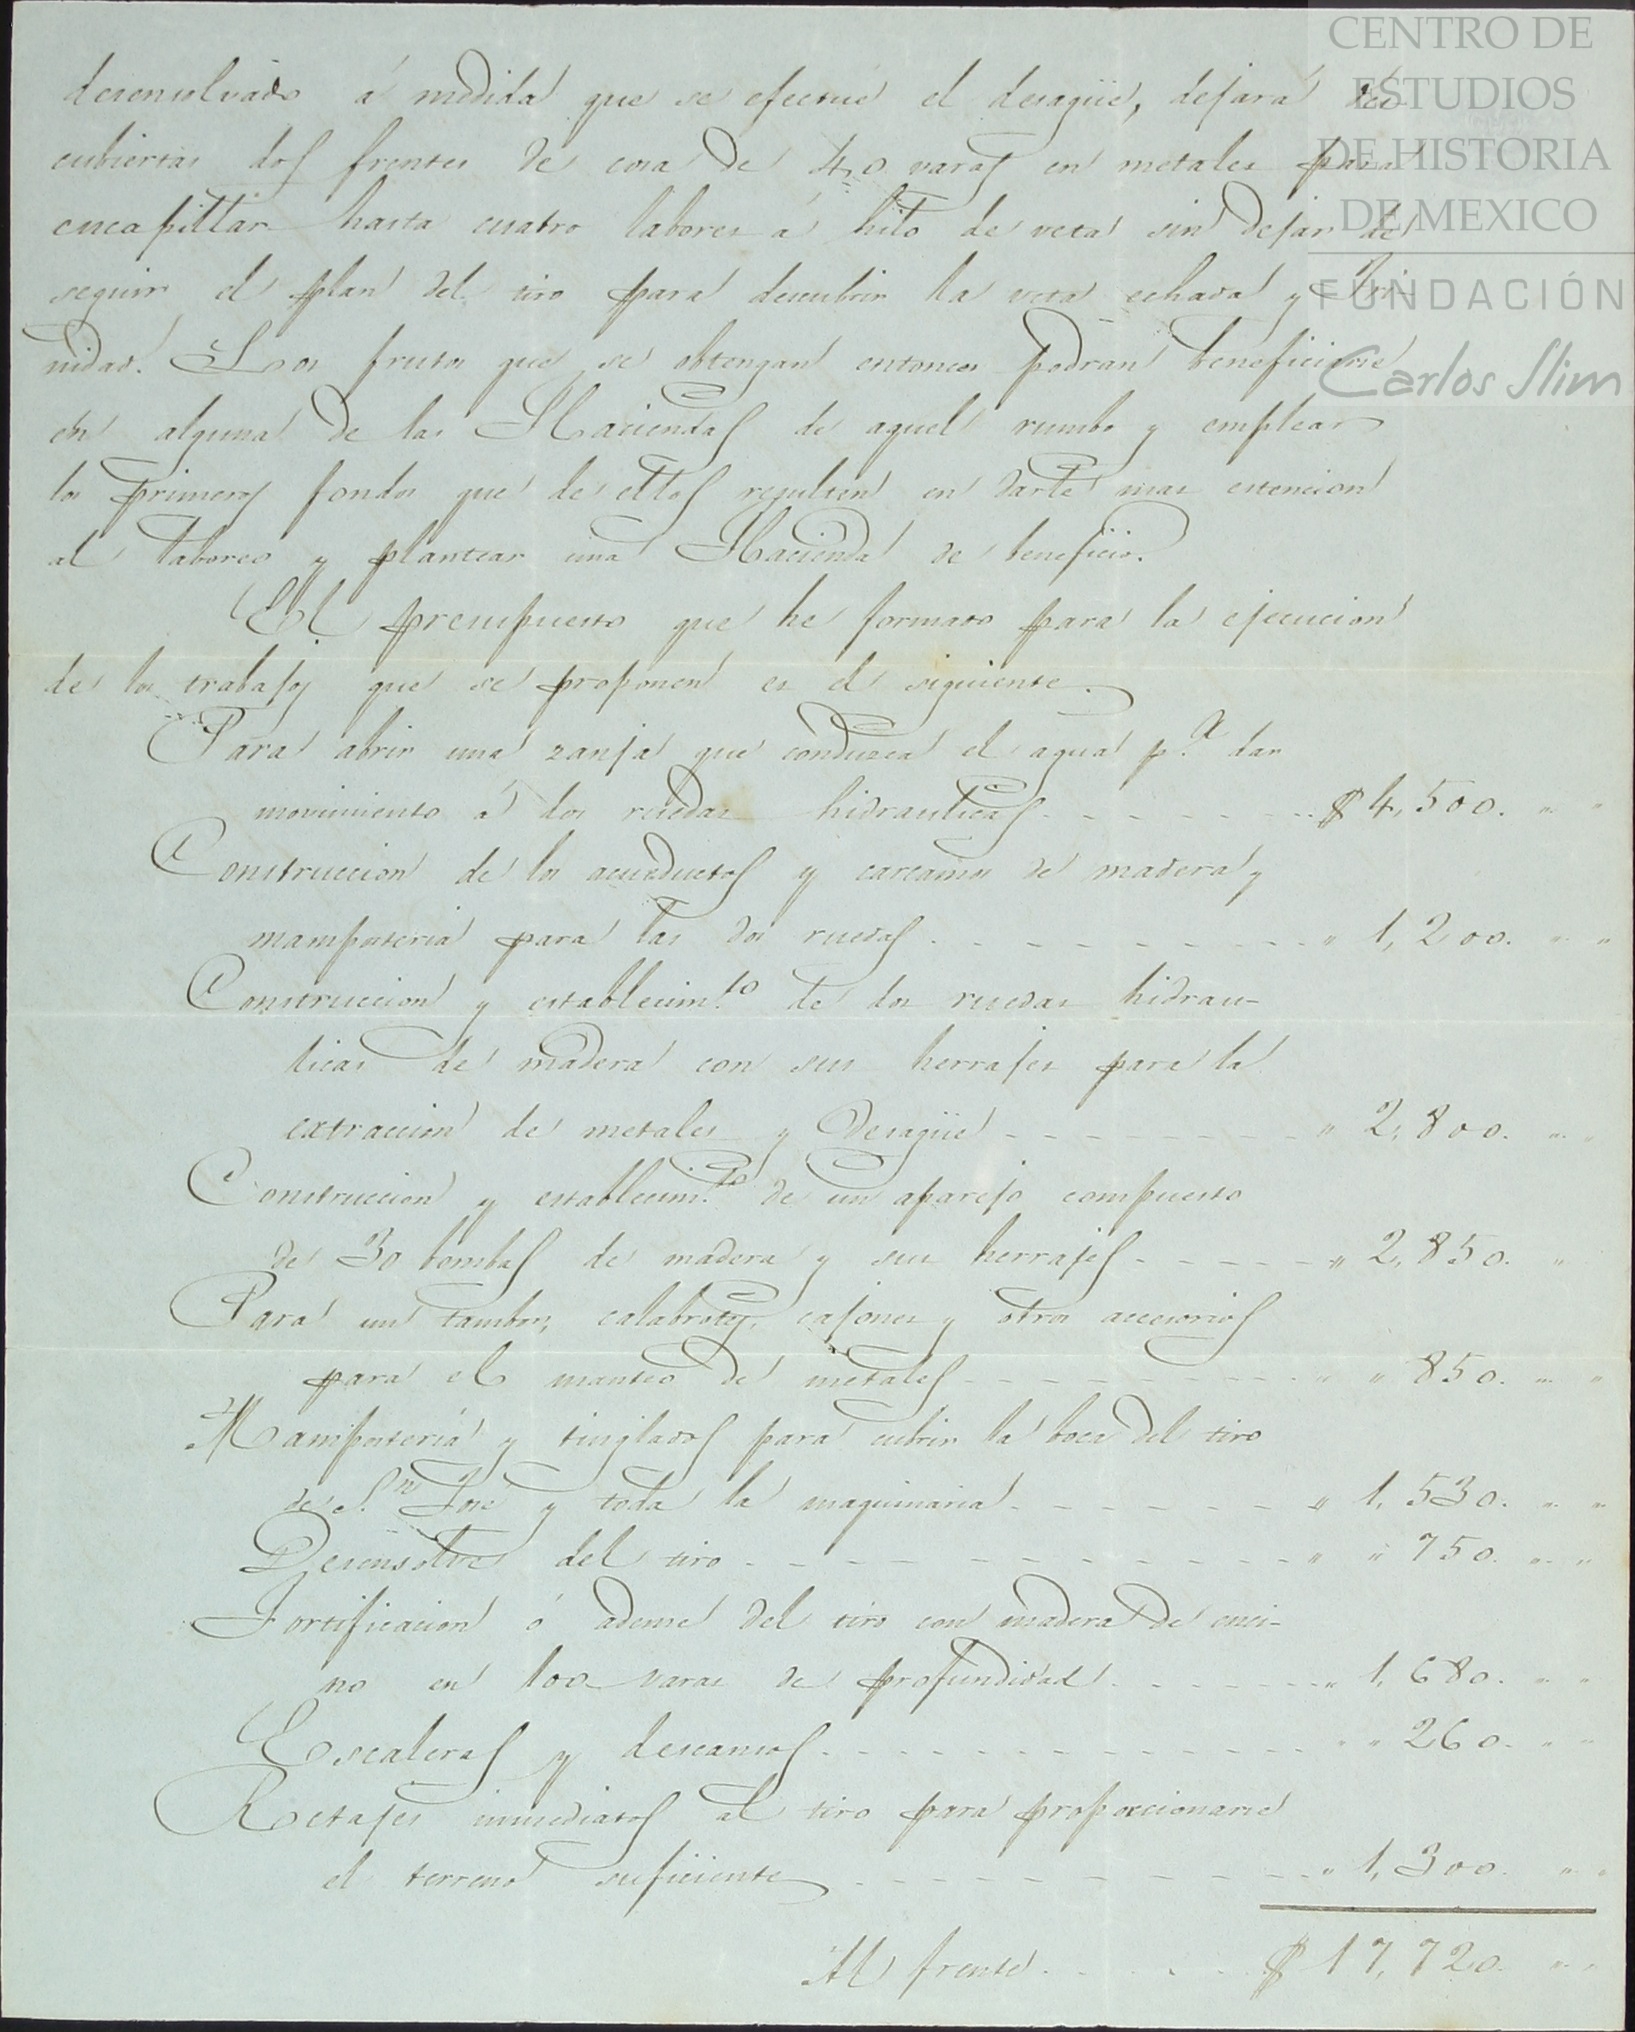 CENTRO DE
ESTUDIOS
DE HISTORIA
DE MEXICO
FUNDACIÓN
Carlos Slim
desensolvado á medida que se efectue el desagüe, dejará des-
cubiertas dos frentes de cosa de 40 varas en metales para
encapillar hasta cuatro labores á hilo de veta sin dejar de
seguir el plan del tiro para descubrir la veta echada y Tri-
nidad. Los frutos que se obtengan entonces podran beneficiarse
en alguna de las Haciendas de aquel rumbo y emplear
los primeros fondos que de ellos resulten en darle mas estencion
al laboreo y plantear una Hacienda de beneficio.
El presupuesto que he formado para la ejecucion
de los trabajos que se proponen es el siguiente.
Para abrir una zanja que conduzca el agua p.ª dar
movimiento á dos ruedas hidraulicas - - - - - - - $ 4,500. " "
Construccion de los acueductos y carcamos de madera y
mamposteria para las dos ruedas - - - - - - - - - " 1,200. " "
Construccion y establecim.to de dos ruedas hidrau-
licas de madera con sus herrajes para la
extraccion de metales y desagüe - - - - - - - - " 2,800. " "
Construccion y establecim.to de un aparejo compuesto
de 30 bombas de madera y sus herrajes - - - - - " 2,850. "
Para un tambor, calabrotes, cajones y otros accesorios
para el manteo de metales - - - - - - - - - " " 850. " "
Mamposteria y tinglados para cubrir la boca del tiro
de S.n José y toda la maquinaria - - - - - - - " 1,530. " "
Desensolve del tiro - - - - - - - - - - - - - " " 750. " "
Fortificacion ó ademe del tiro con madera de enci-
no en 100 varas de profundidad - - - - - - " 1,680. " "
Escaleras y descansos - - - - - - - - - - - - " " 260. " "
Retajes inmediatos al tiro para proporcionarse
el terreno suficiente - - - - - - - - - - " 1,300. " "
Al frente - - - - - $ 17,720. " "